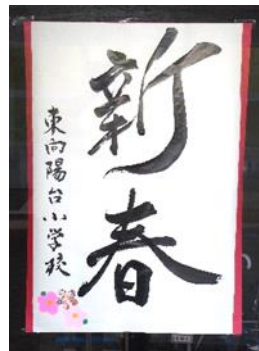 新春
東向陽台小学校